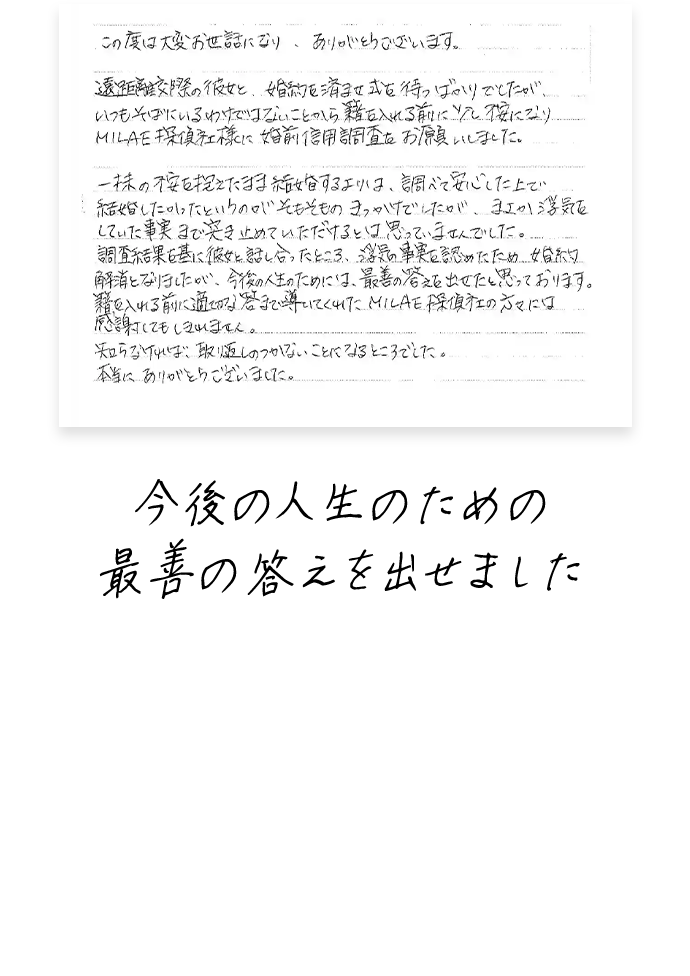 この度は大変お世話になり、ありがとうございます。
遠距離交際の彼女と、婚約を済ませ式を待つばかりでしたが、
いつもそばにいるわけではないことから籍を入れる前に少し不安になり
MILAE探偵社様に婚前信用調査をお願いしました。
一抹の不安を抱えたまま結婚するよりは、調べて安心した上で
結婚したかったというのがそもそものきっかけでしたが、まさか浮気を
していた事実まで突き止めていただけるとは思っていませんでした。
調査結果を基に彼女と話し合ったところ、浮気の事実を認めたため婚約
解消となりましたが、今後の人生のためには、最善の答えを出せたと思っております。
籍を入れる前に適切な答まで導いてくれたMILAE探偵社の方々には
感謝してもしきれません。
知らなければ、取り返しのつかないことになるところでした。
本当にありがとうございました。
今後の人生のための
最善の答えを出せました